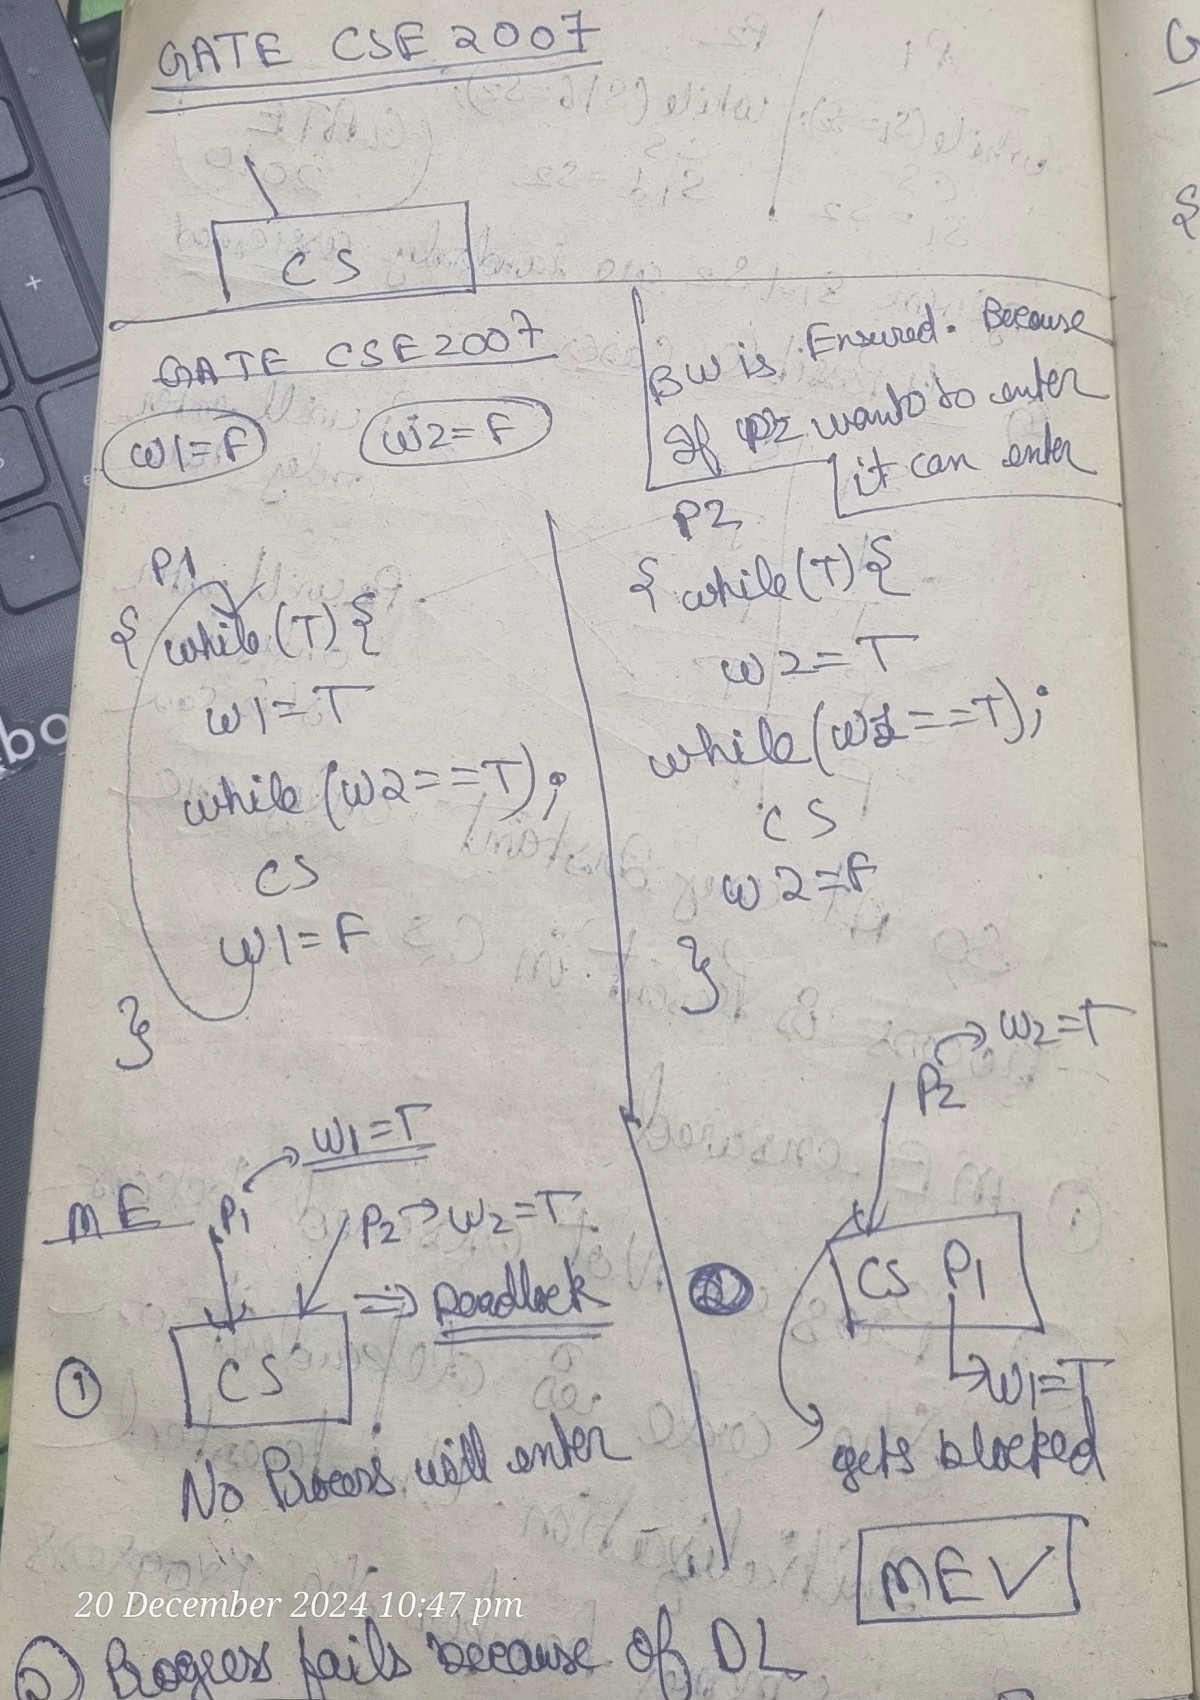 GATE CSE 2007
CS
GATE CSE 2007
w1=F
w2=F
BW is Ensured. Because
If P2 wants to enter
it can enter
P1
{ while(T) {
w1=T
while (w2==T);
CS
w1=F
}
P2
{ while(T) {
w2=T
while (w1==T);
CS
w2=F
}
ME P1 → w1=T
P2 → w2=T
⇒ Deadlock
① CS
No Process will enter
P2 → w2=T
② CS P1
w1=T
gets blocked
ME✓
20 December 2024 10:47 pm
② Progress fails because of DL
bo
+
G
{